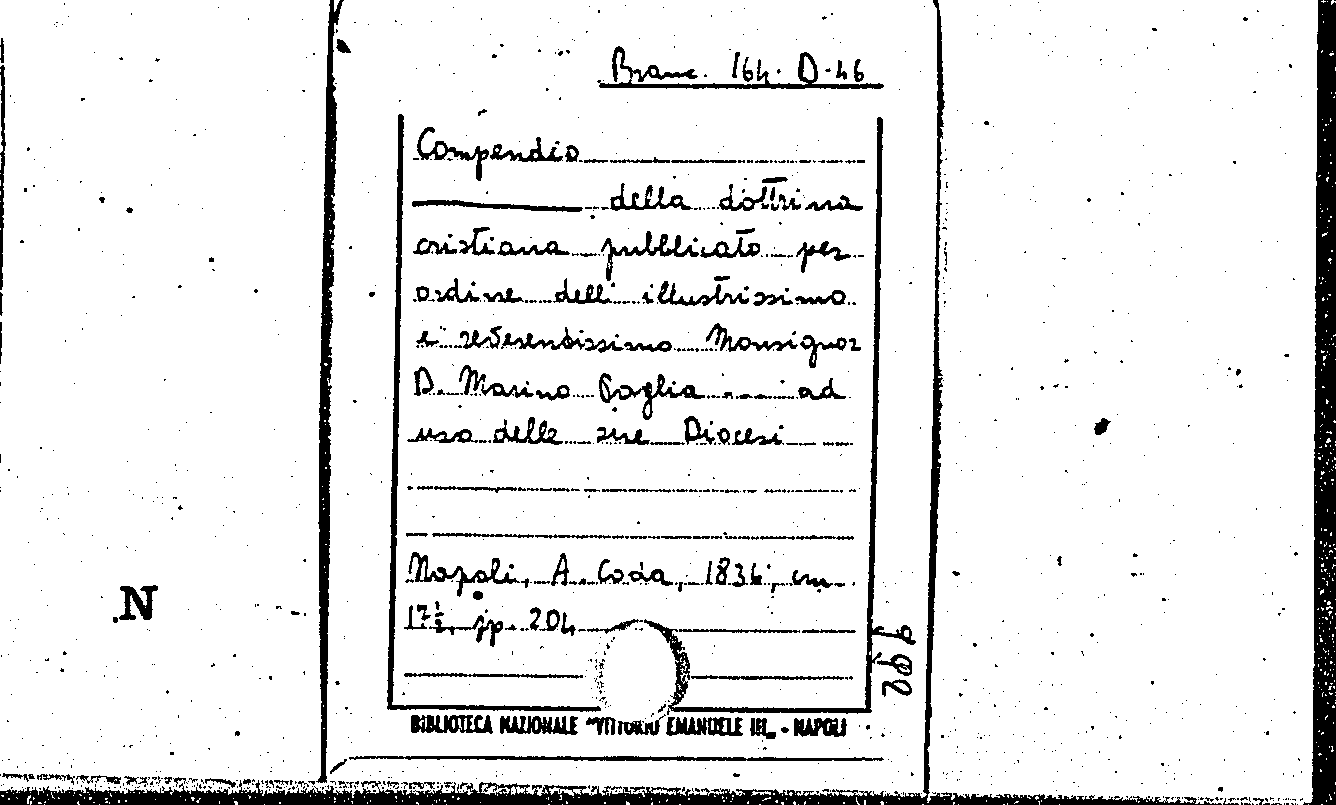 Branc. 164. D. 46
Compendio
della dottrina
cristiana pubblicato per
ordine dell' illustrissimo
e reverendissimo Monsignor
D. Marino Paglia ... ad
uso delle sue Diocesi
Napoli, A. Coda, 1836; cm
17½, pp. 204
BIBLIOTECA NAZIONALE "VITTORIO EMANUELE III„ - NAPOLI
.N